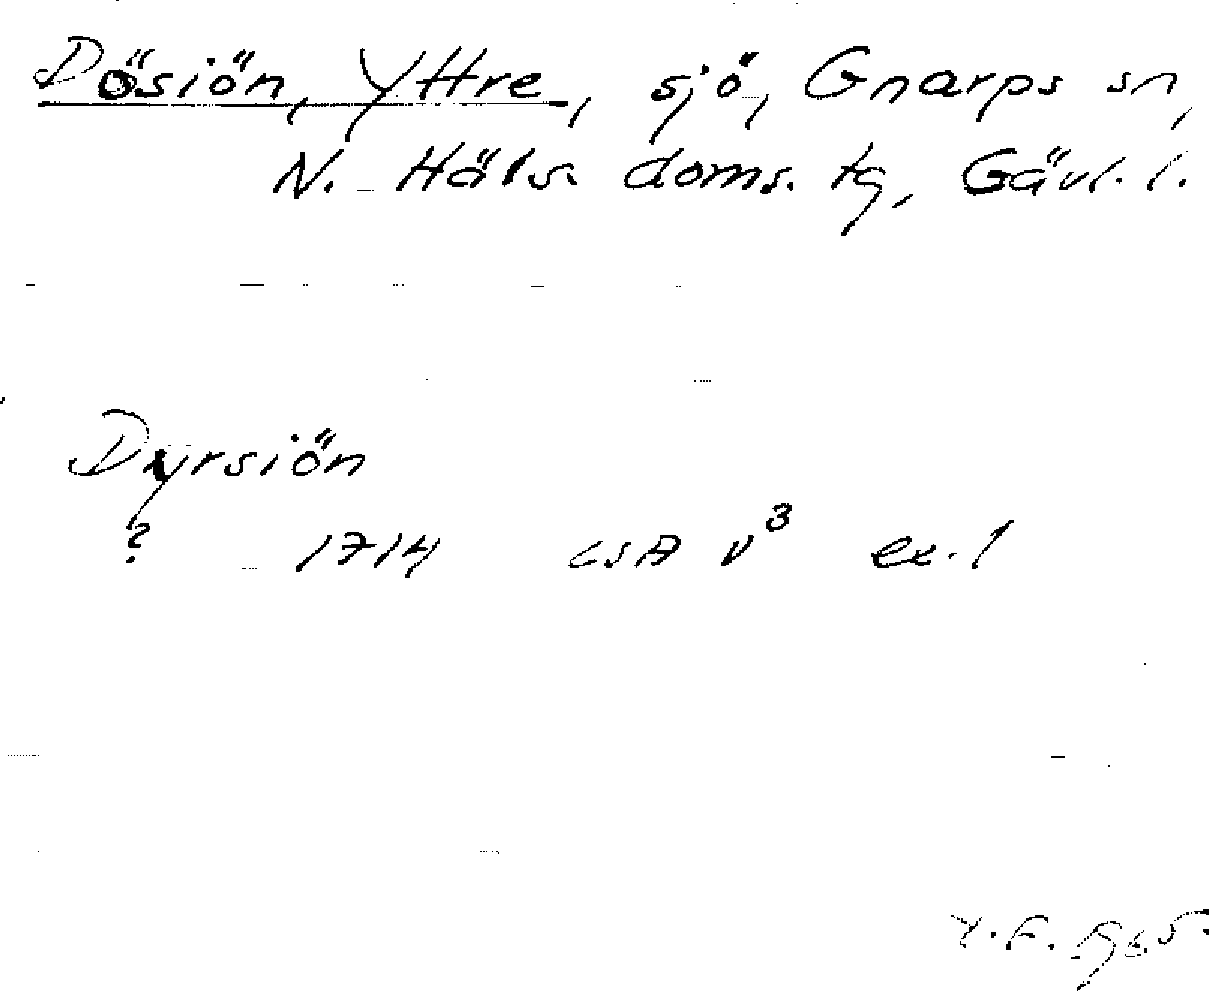 Dösiön, Yttre, sjö, Gnarps sn,
N. Häls. doms. tg, Gävl. l.
Dyrsiön
? 1714 LSA V³ ex. 1
Y. F. 1965.